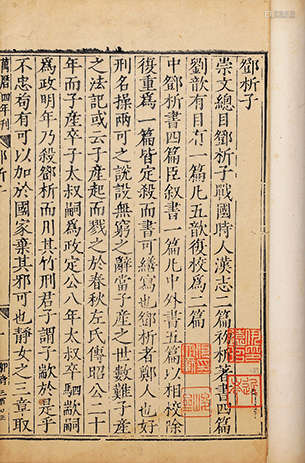 鄧析子
崇文總目鄧析子戰國時人漢志二篇初析著書四篇
劉歆有目有一篇凡五歆復校為二篇
中鄧析書四篇臣叙書一篇凡中外書五篇以相校除
復重為一篇皆定殺而書可繕寫也鄧析者鄭人也好
刑名操兩可之說設無窮之辭當子產之世數難子產
之法記或云子產起而戮之於春秋左氏傳昭公二十
年而子產卒子太叔嗣為政定公八年太叔卒駟歂嗣
為政明年乃殺鄧析而用其竹刑君子謂子歂於是乎
不忠苟有可以加於國家棄其邪可也靜女之三章取
萬曆四年刊
鄧析子